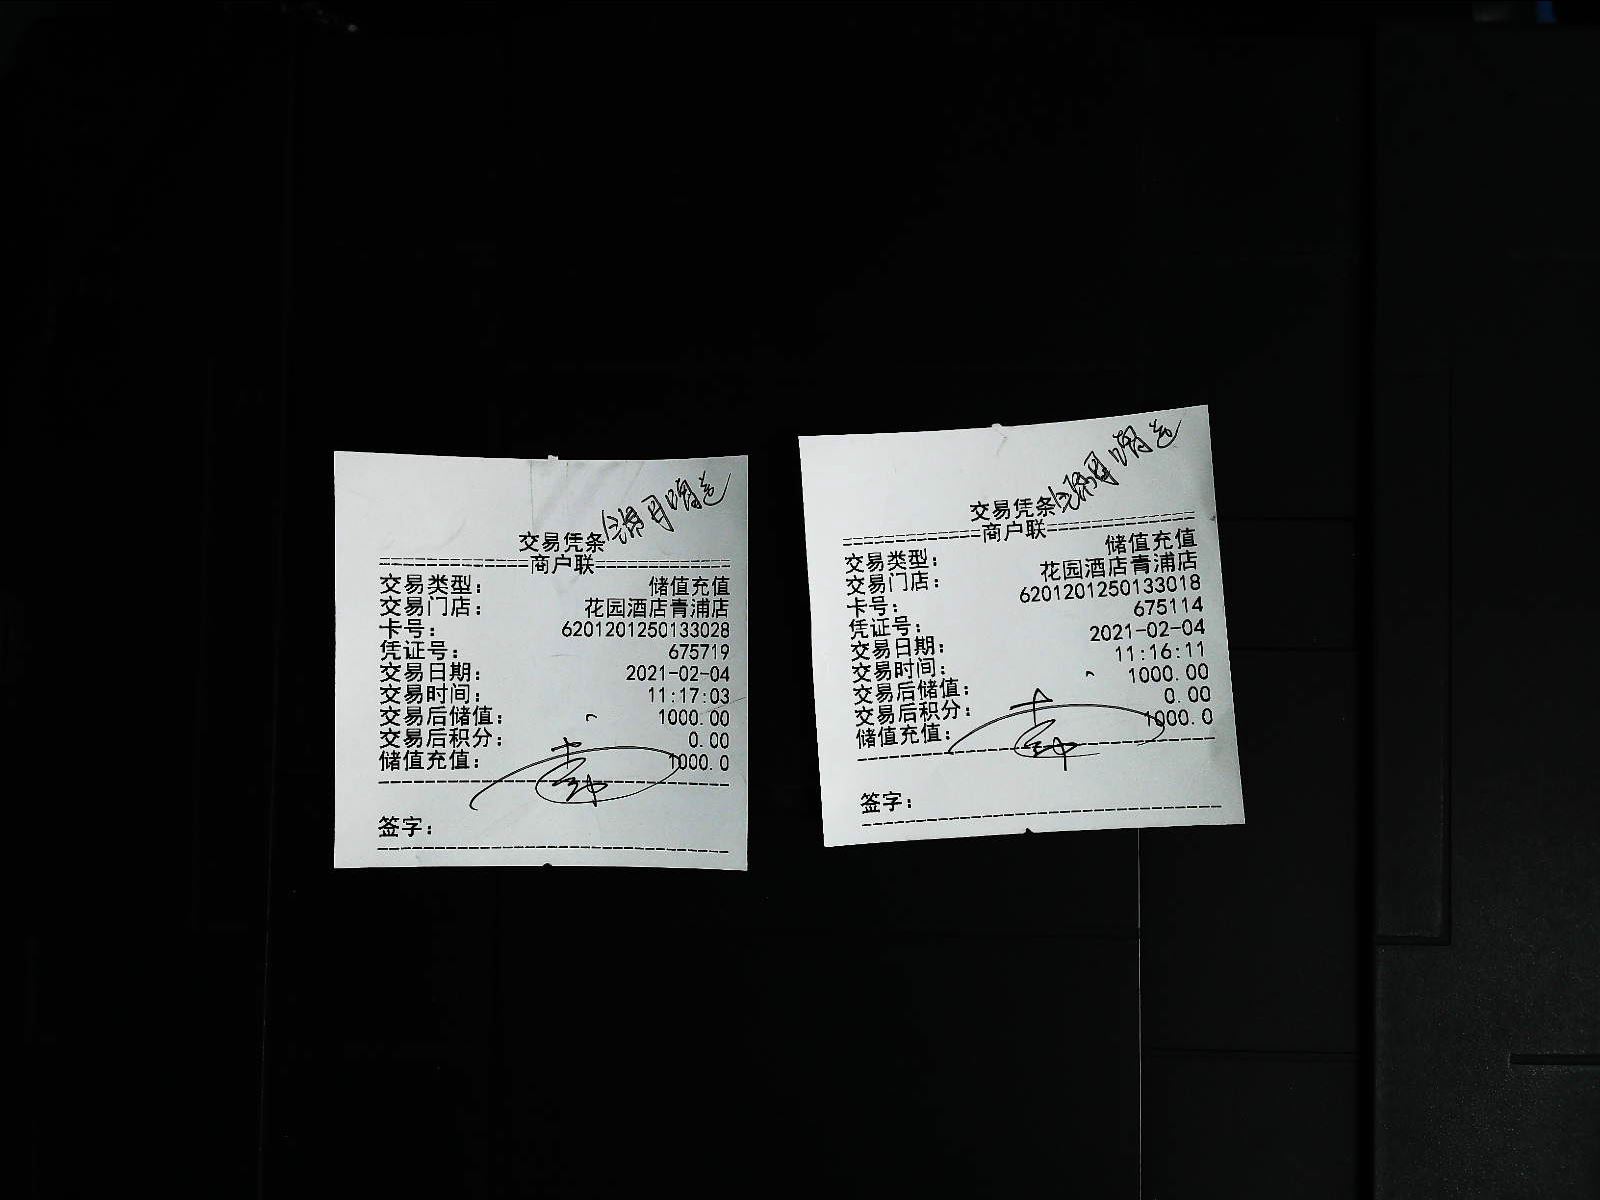 交易凭条
==============商户联==============
交易类型： 储值充值
交易门店： 花园酒店青浦店
卡号： 6201201250133028
凭证号： 675719
交易日期： 2021-02-04
交易时间： 11:17:03
交易后储值： 1000.00
交易后积分： 0.00
储值充值： 1000.0
签字：
交易凭条
==============商户联==============
交易类型： 储值充值
交易门店： 花园酒店青浦店
卡号： 6201201250133018
凭证号： 675114
交易日期： 2021-02-04
交易时间： 11:16:11
交易后储值： 1000.00
交易后积分： 0.00
储值充值： 1000.0
签字：